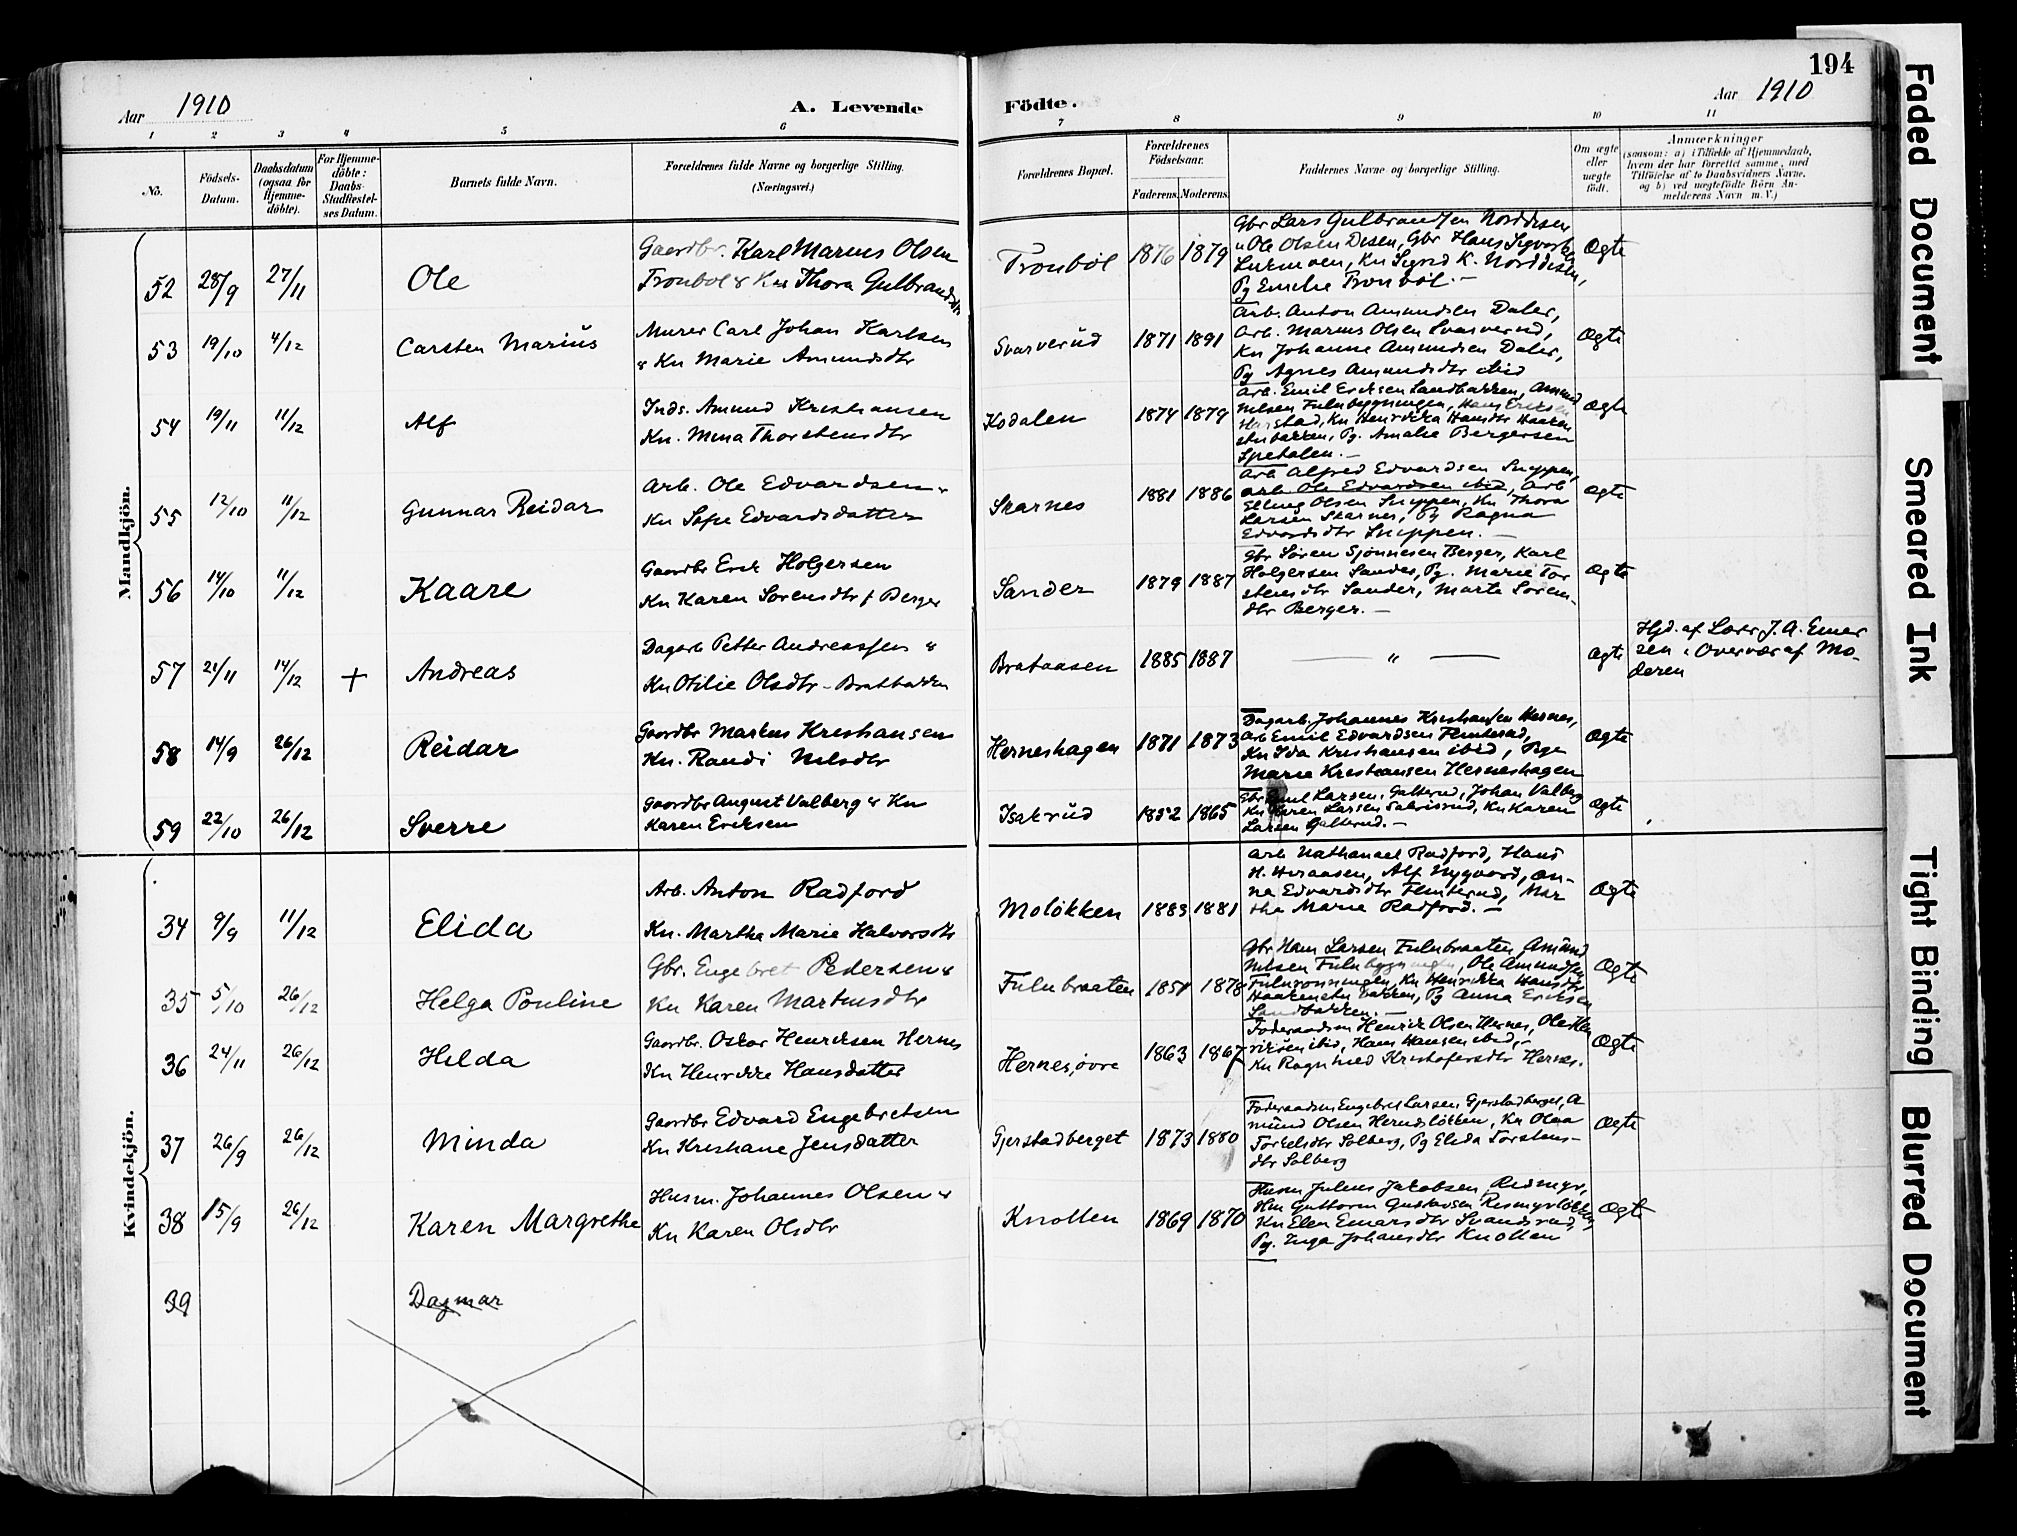 194
Aar 1910 A. Levende Födte. Aar 1910
1 2 3 4 5 6 7 8 9 10 11
No.
Födsels-
Datum.
Daabsdatum
(ogsaa for
Hjemme-
döbte).
For Hjemme-
döbte:
Daabs-
Stadfæstel-
ses Datum.
Barnets fulde Navn.
Forældrenes fulde Navne og borgerlige Stilling.
(Næringsvei.)
Forældrenes Bopæl.
Forældrenes
Födselsaar.
Faderens. Moderens.
Faddernes Navne og borgerlige Stilling.
Om ægte
eller
uægte
født.
Anmærkninger
(saasom: a) i Tilfælde af Hjemmedaab,
hvem der har forrettet samme, med
Tilföielse af to Daabsvidners Navne,
og b) ved uægtefödte Börn An-
melderens Navn m. V.)
Mandkjön.
52 28/9 27/11 Ole
Gaardbr. Karl Marius Olsen
Tronbøl & Kne Thora Gulbrandsdtr
Tronbøl 1876 1879
Gbr Lars Gulbrandsen Norddisen
Ole Olsen Disen, Gbr Hans
Kn Sigrid K. Norddisen,
Pg Emilie Tronbøl. —
Ægte
53 19/10 4/12 Carsten Marius
Murer Carl Johan Karlsen
& Kn Marie Amundsdtr
Svarverud 1871 1891
Arb. Anton Amundsen Daler,
Arb. Marius Olsen Svarverud,
Kn Johanne Amundsen Daler,
Pg Agnes Amundsdtr ibid
Ægte
54 19/11 11/12 Alf
Inds. Amund Kristiansen
Kn. Mina Thorstensdtr
Kodalen 1874 1879
Arb. Emil Eriksen Sandbakken, Amund
Nilsen Fulubygningen, Hans Eriksen
Harstad, Kn Henrikka Hansdtr Haaken
stubakken, Pg. Amalie Bergersen
Spetalen. —
Ægte
55 12/10 11/12 Gunnar Reidar
Arb. Ole Edvardsen &
Kn Sofie Edvardsdatter
Skarnes 1881 1886
Arb Alfred Edvardsen Snippen,
Arb Ole Edvardsen ibid, Arb
Olsen Snippen, Kn Thora
Larsen Skarnes, Pg Ragna
Edvardsdtr Snippen. —
Ægte
56 14/10 11/12 Kaare
Gaardbr Erik Holgersen
Kn Karen Sørensdtr f Berger
Sander 1879 1887
Gbr Søren Sjønnesen Berger, Karl
Holgersen Sander, Pg. Marie Tor
stensdtr Sander, Marte Søren-
dtr Berger. —
Ægte
57 21/11 14/12 + Andreas
Dagarb Petter Andreassen &
Kn Otilie Olsdtr - Bratbakken
Brataasen 1885 1887
— " —
Ægte
Hjd. af Lærer J. A. Einar
sen i Overvær af Mo-
deren
58 14/9 26/12 Reidar
Gaardbr Markus Kristiansen
Kn. Randi Nilsdtr
Herneshagen 1871 1873
Dagarb. Johannes Kristiansen Hernes,
Arb Emil Edvardsen Flinterud,
Kn Ida Kristiansen ibid, Pge
Marie Kristiansen Herneshagen
Ægte
59 22/10 26/12 Sverre
Gaardbr August Valberg & Kn
Karen Eriksen
Isakrud 1852 1865
Gbr Emil Larsen, Galterud, Johan Valberg
Kn Karen Larsen Kn Karen
Larsen Galterud. —
Ægte
Kvindekjön.
34 9/9 11/12 Elida
Arb. Anton Radford
Kn. Martha Marie Halvorsdtr
Moløkken 1883 1881
Arb Nathanael Radford, Hans
H. Alf Nygaard, An-
na Edvardsdtr Flinterud, Mar
tha Marie Radford. —
Ægte
35 5/10 26/12 Helga Pouline
Gbr. Engebret Pedersen &
Kn Karen Martinsdtr
Fulubraaten 1851 1878
Gbr Hans Larsen Fulubraaten, Amund
Nilsen Fulubygningen, Ole Amundsen
Fulurønningen, Kn Henrikka Hansdtr
Haakenstubakken, Pg Anna Eriksen
Sandbakken. —
Ægte
36 24/11 26/12 Hilda
Gaardbr. Oskar Henriksen Hernes
Kn Henrikke Hansdatter
Hernes, øvre 1863 1867
Føderaadsm Henrik Olsen Hernes, Ole Hen
riksen ibid, Hans Hansen ibid, -
Kn Ragnhild Kristofersdtr Hernes.
Ægte
37 26/9 26/12 Minda
Gaardbr Edvard Engebretsen
Kn Kristiane Jensdatter
Gjerstadberget 1873 1880
Føderaadsm Engebret Larsen Gjerstadberget, A
mund Olsen Kn Olea
Torkelsdtr Solberg, Pg Elida Torstens-
dtr Solberg
Ægte
38 15/9 26/12 Karen Margrethe
Husm. Johannes Olsen &
Kn Karen Olsdtr
Knollen 1869 1870
Husm Julius Jakobsen, Rismyr,
Hm Guttorm Gustavsen Rismyrløkken
Kn Elen Einarsdtr Svandsrud,
Pg. Inga Johansdtr Knollen
Ægte
39 Dagmar
Faded Document
Smeared Ink
Tight Binding
Blurred Document